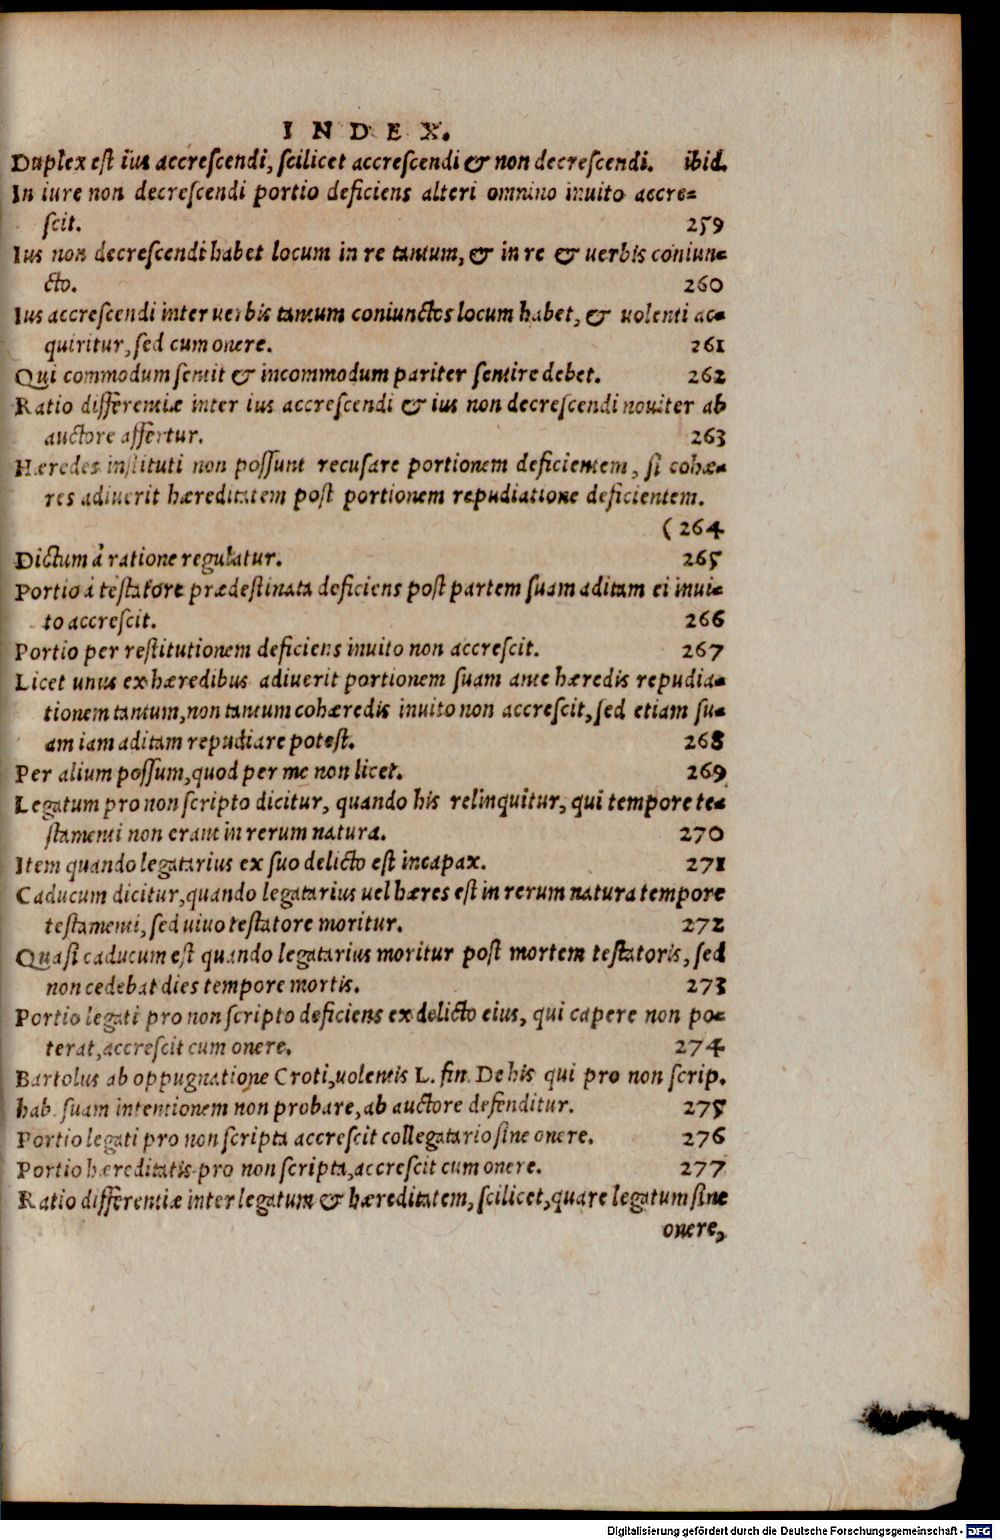 INDEX.
Duplex est ius accrescendi, scilicet accrescendi & non decrescendi. ibid.
In iure non decrescendi portio deficiens alteri omnino inuito accre=
scit. 259
Ius non decrescendi habet locum in re tantum, & in re & uerbis coniun=
cto. 260
Ius accrescendi inter uerbis tantum coniunctos locum habet, & uolenti ac=
quiritur, sed cum onere. 261
Qui commodum sentit & incommodum pariter sentire debet. 262
Ratio differentiæ inter ius accrescendi & ius non decrescendi nouiter ab
auctore affertur. 263
Hæredes instituti non possunt recusare portionem deficientem, si cohæ=
res adiuerit hæreditatem post portionem repudiatione deficientem.
(264
Dictum à ratione regulatur. 265
Portio à testatore prædestinata deficiens post partem suam aditam ei inui=
to accrescit. 266
Portio per restitutionem deficiens inuito non accrescit. 267
Licet unus ex hæredibus adiuerit portionem suam ante hæredis repudia=
tionem tantum, non tantum cohæredis inuito non accrescit, sed etiam su=
am iam aditam repudiare potest. 268
Per alium possum, quod per me non licet. 269
Legatum pro non scripto dicitur, quando his relinquitur, qui tempore te=
stamenti non erant in rerum natura. 270
Item quando legatarius ex suo delicto est incapax. 271
Caducum dicitur, quando legatarius uel hæres est in rerum natura tempore
testamenti, sed uiuo testatore moritur. 272
Quasi caducum est quando legatarius moritur post mortem testatoris, sed
non cedebat dies tempore mortis. 273
Portio legati pro non scripto deficiens ex delicto eius, qui capere non po=
terat, accrescit cum onere. 274
Bartolus ab oppugnatione Croti, uolentis L. fin. De his qui pro non scrip.
hab. suam intentionem non probare, ab auctore defenditur. 275
Portio legati pro non scripta accrescit collegatario sine onere. 276
Portio hæreditatis pro non scripta, accrescit cum onere. 277
Ratio differentiæ inter legatum & hæreditatem, scilicet, quare legatum sine
onere,
Digitalisierung gefördert durch die Deutsche Forschungsgemeinschaft - DFG